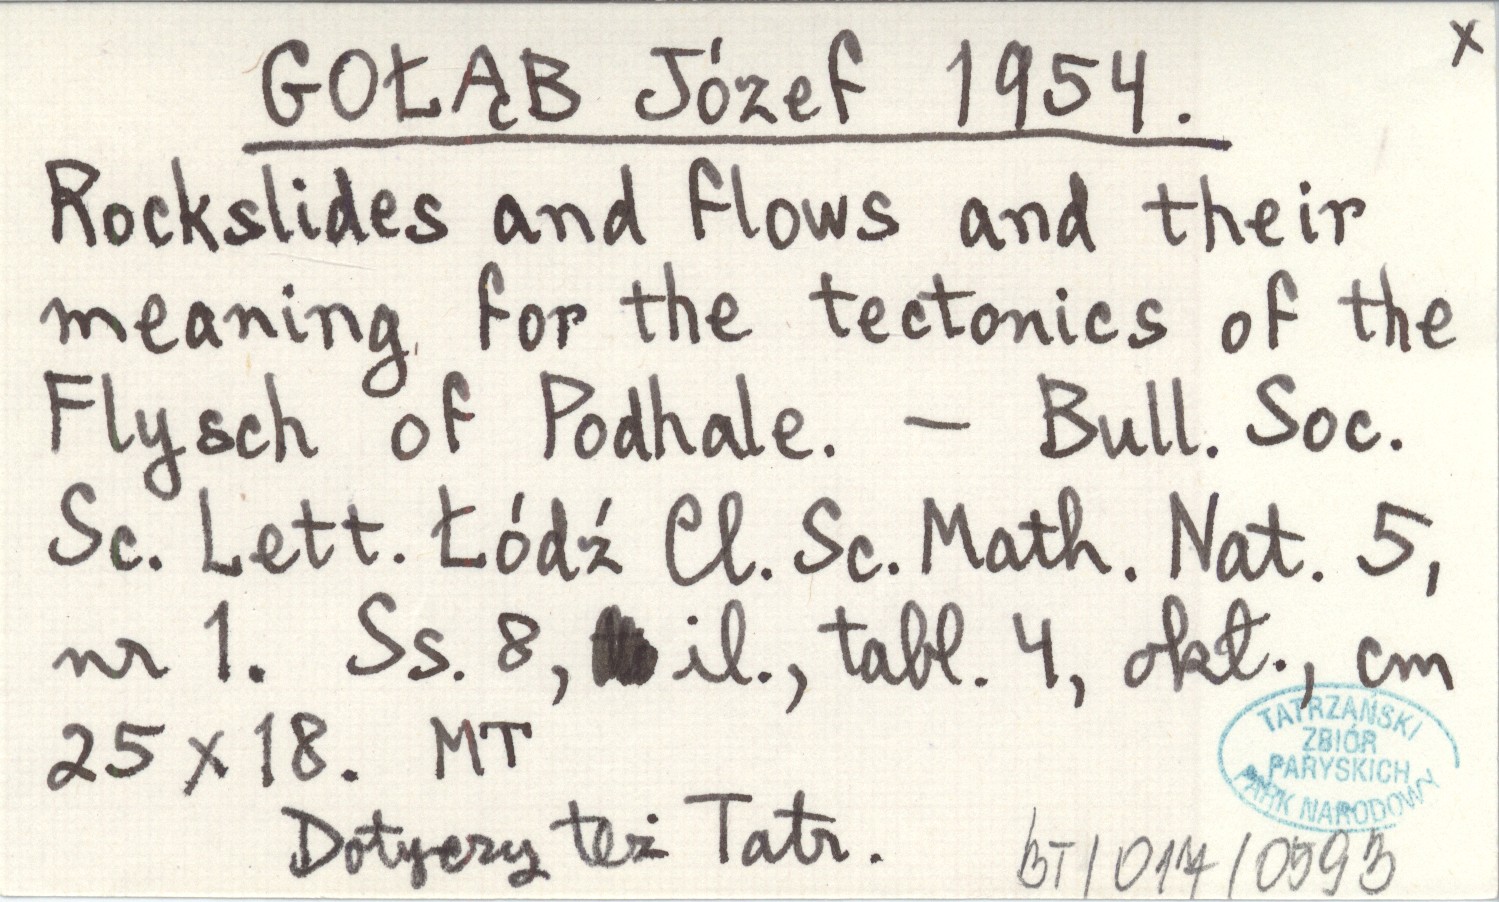 x
GOŁĄB Józef 1954.
Rockslides and flows and their
meaning for the tectonics of the
Flysch of Podhale. – Bull. Soc.
Sc. Lett. Łódź Cl. Sc. Math. Nat. 5,
nr 1. Ss. 8, il., tabl. 4, okł., cm
25 x 18. MT
Dotyczy też Tatr.
TATRZAŃSKI
ZBIÓR
PARYSKICH
PARK NARODOWY
BT/017/0593